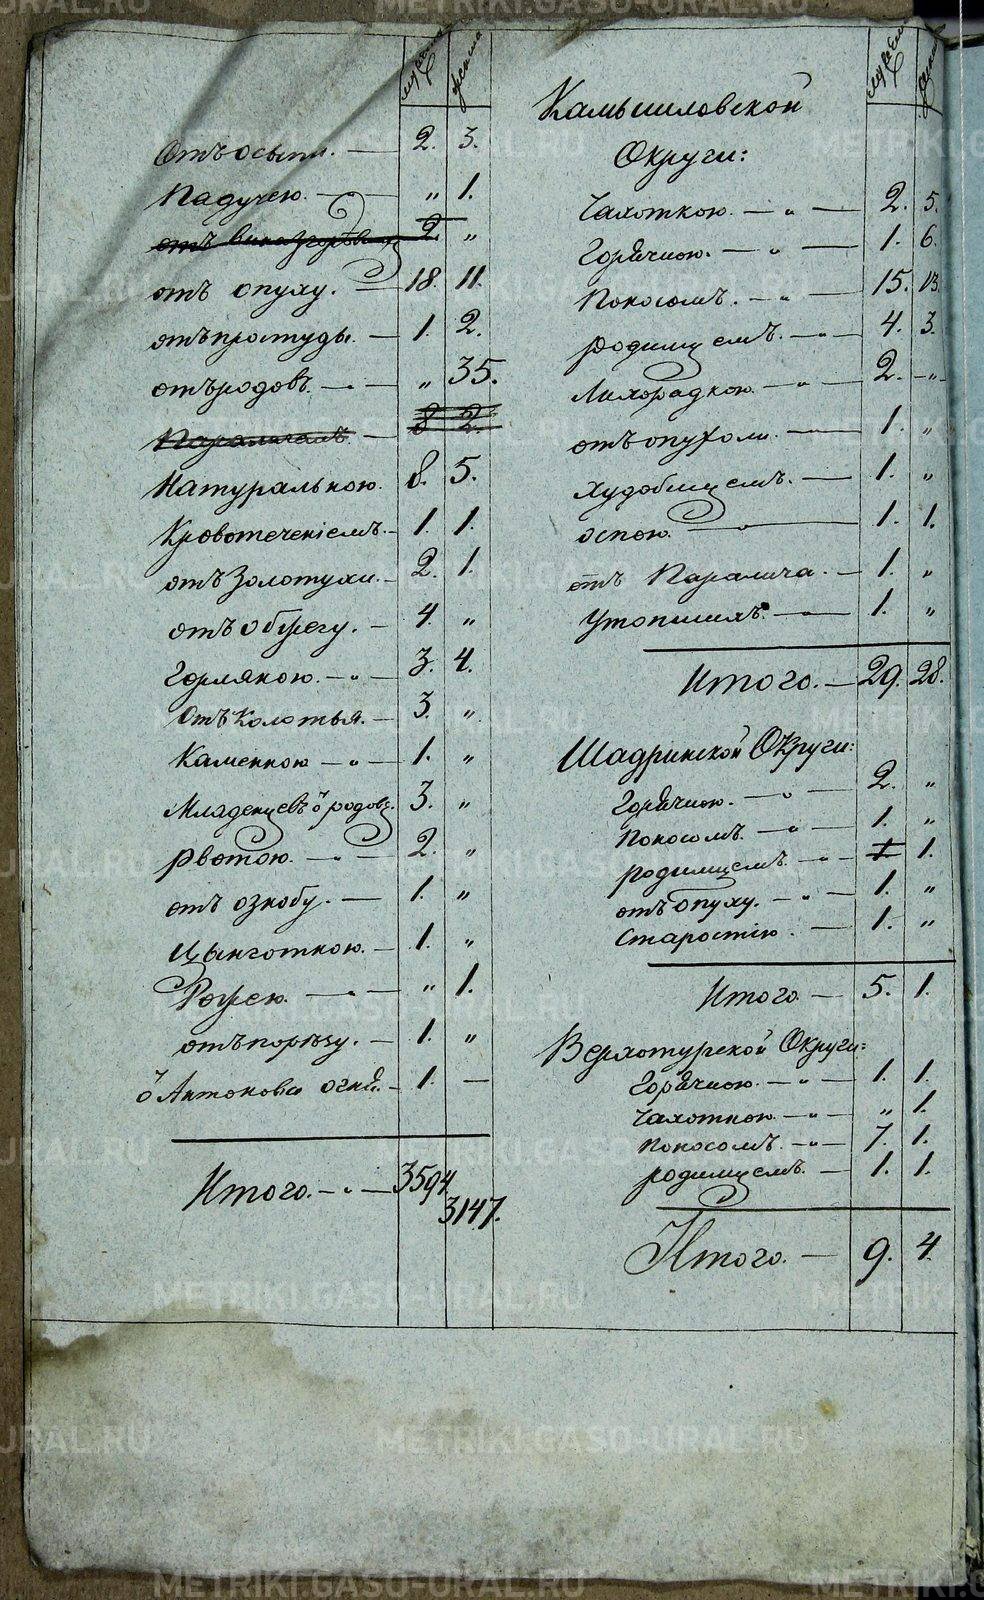 мужска женска
Отъ осыпи. — 2. 3.
Падучею. — „ 1.
отъ вина згорѣвш 2. „
отъ опуху. — 18. 11.
отъ простуды. — 1. 2.
отъ родовъ. — „ — „ 35.
Параличамъ. — 8 2.
Натуральною. 8. 5.
Кровотеченіемъ. — 1. 1.
отъ Золотухи. — 2. 1.
отъ обжегу. — 4. „
Горлякою. — „ — 3. 4.
Отъ Колотья. — 3. „
Каменною — „ — 1. „
Младенцевъ ѿ родовъ. 3. „
рвотою. — „ — 2. „
отъ ознобу. — 1. „
Цынготною. — 1. „
Рожею. — „ — „ 1.
отъ порѣзу. — 1. „
ѿ Антонова огня. — 1. —
Итого. — „ — 3594
3147.
мужеска женска
Камышловской
Округи:
Чахоткою. — „ — 2. 5.
Горячкою. — „ — 1. 6.
Поносомъ. — „ — 15. 13.
родимцемъ. — „ — 4. 3.
Лихорадкою. — „ — 2. — „ —
отъ опухоли. — 1. „
худобищемъ. — 1. „
оспою. — „ — 1. 1.
отъ Паралича. — 1. „
Утопшихъ. — „ — 1. „
Итого. — 29. 28.
Шадринской Округи:
Горячкою. — „ — 2. „
Поносомъ. — „ — 1. „
родимцемъ. — „ — 1 1.
отъ опуху. — „ — 1. „
Старостію. — 1. „
Итого — 5. 1.
Верхотурской Округи:
Горячкою. — „ — 1. 1.
Чахоткою — „ — „ 1.
Поносомъ. — „ — 7. 1.
родимцемъ. — 1. 1.
Итого. — 9. 4.
METRIKI.GASO-URAL.RU